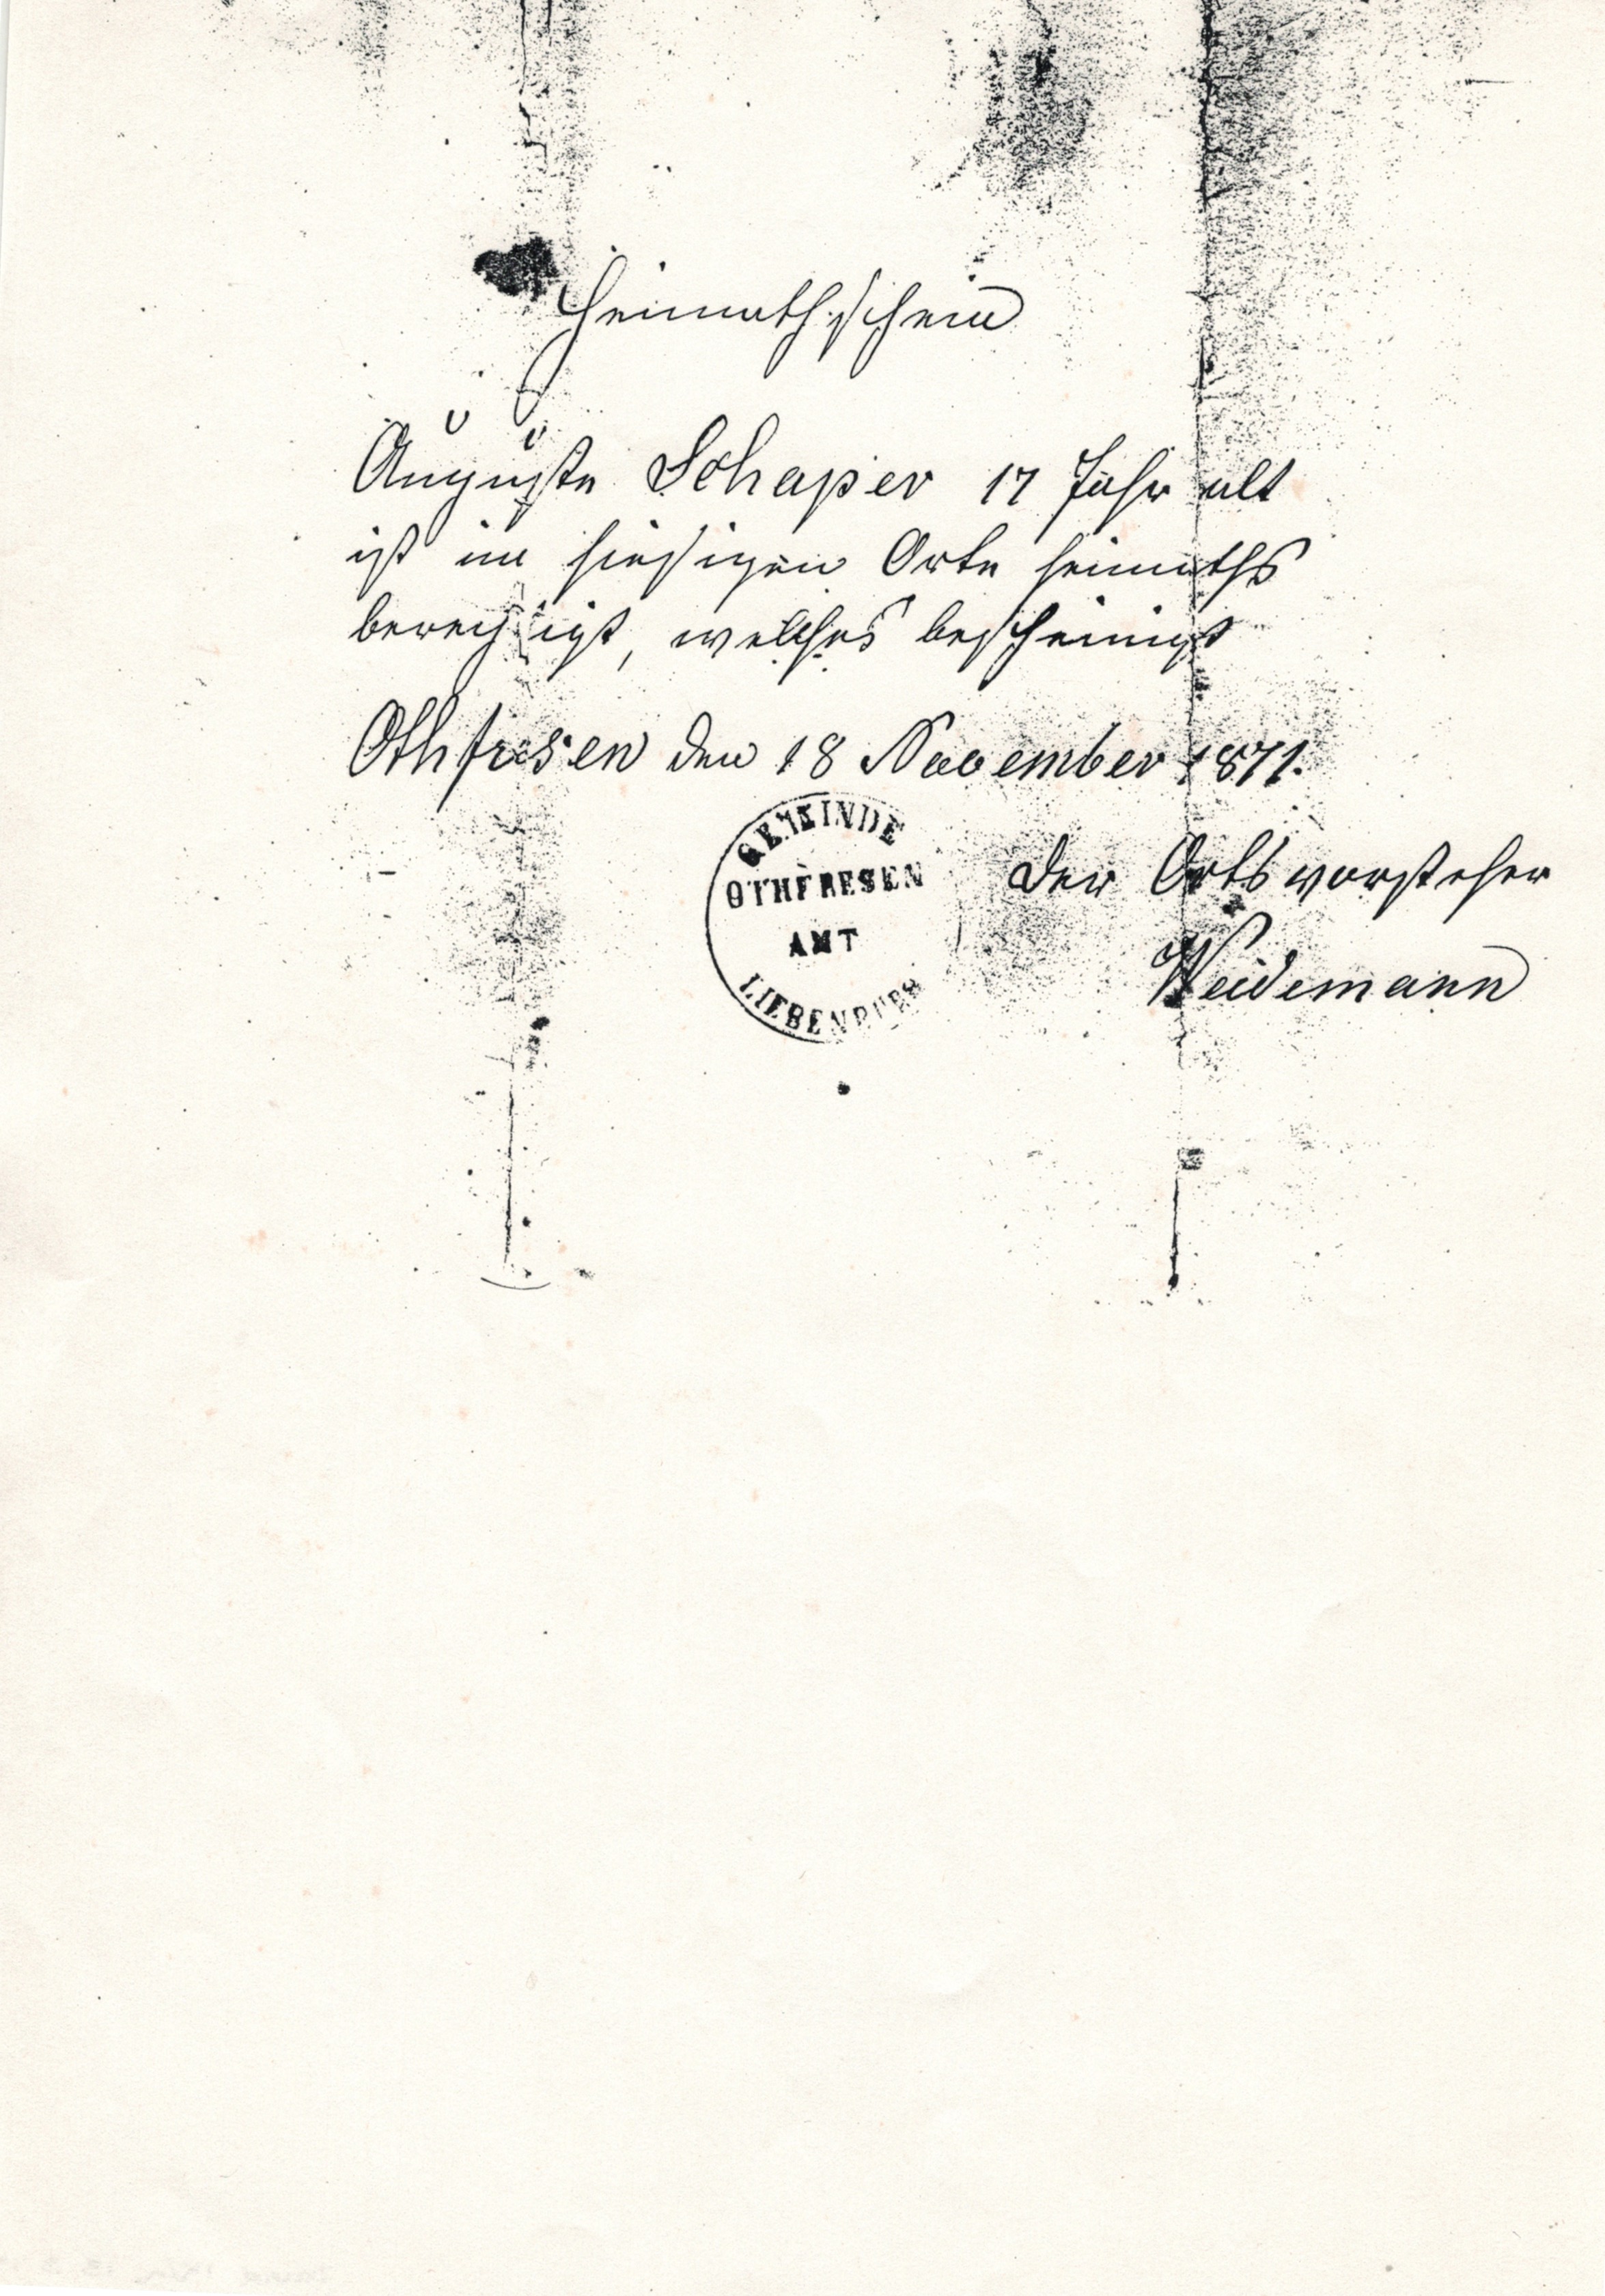 Heimathschein
Auguste Schaper 17 Jahr alt
ist im hiesigen Orte heimaths
berechtigt, welches bescheinigt
Othfresen den 18 November 1871.
GEMEINDE
OTHFRESEN
AMT
LIEBENBURG
Der Ortsvorsteher
Weidemann